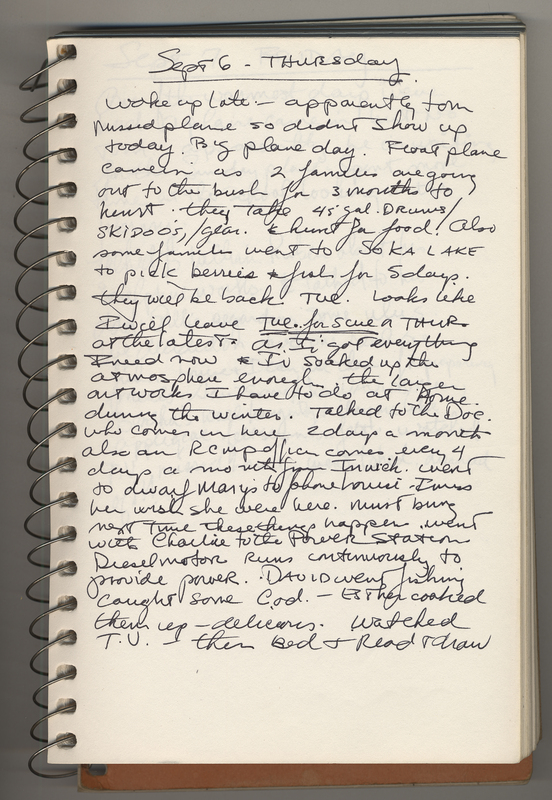 Sept 6 - THURSday
Wake up late - apparently Tom
missed plane so didnt show up
today. Big plane day. Float plane
came in as 2 families are going
out to the bush for 3 months to
hunt. they Take 45 gal. DRUMS/
SKIDOOS,/gear. & hunt for food! Also
some families went to SOKA LAKE
to pick berries & fish for 5 days.
they will be back. Tue. Looks like
I will leave Tue. for sure or THUR.
at the latest. as I got everything
I need now & Iv soaked up the
atmosphere enough. the larger
artworks I have to do at Home.
during the winter. Talked to the Doc.
who comes in here 2 days a month
also an RCMP officer comes every 4
days a month from Inuvik. went
to Mary's to phone I miss
her wish she were here. must bring
next Time these things happen. went
with Charlie to the Power Station
Diesel motor Runs continuously to
provide power. DAVID went fishing
caught some Cod. - Esther cooked
them up - delicious. Watched
T.V. - then Bed & Read & draw